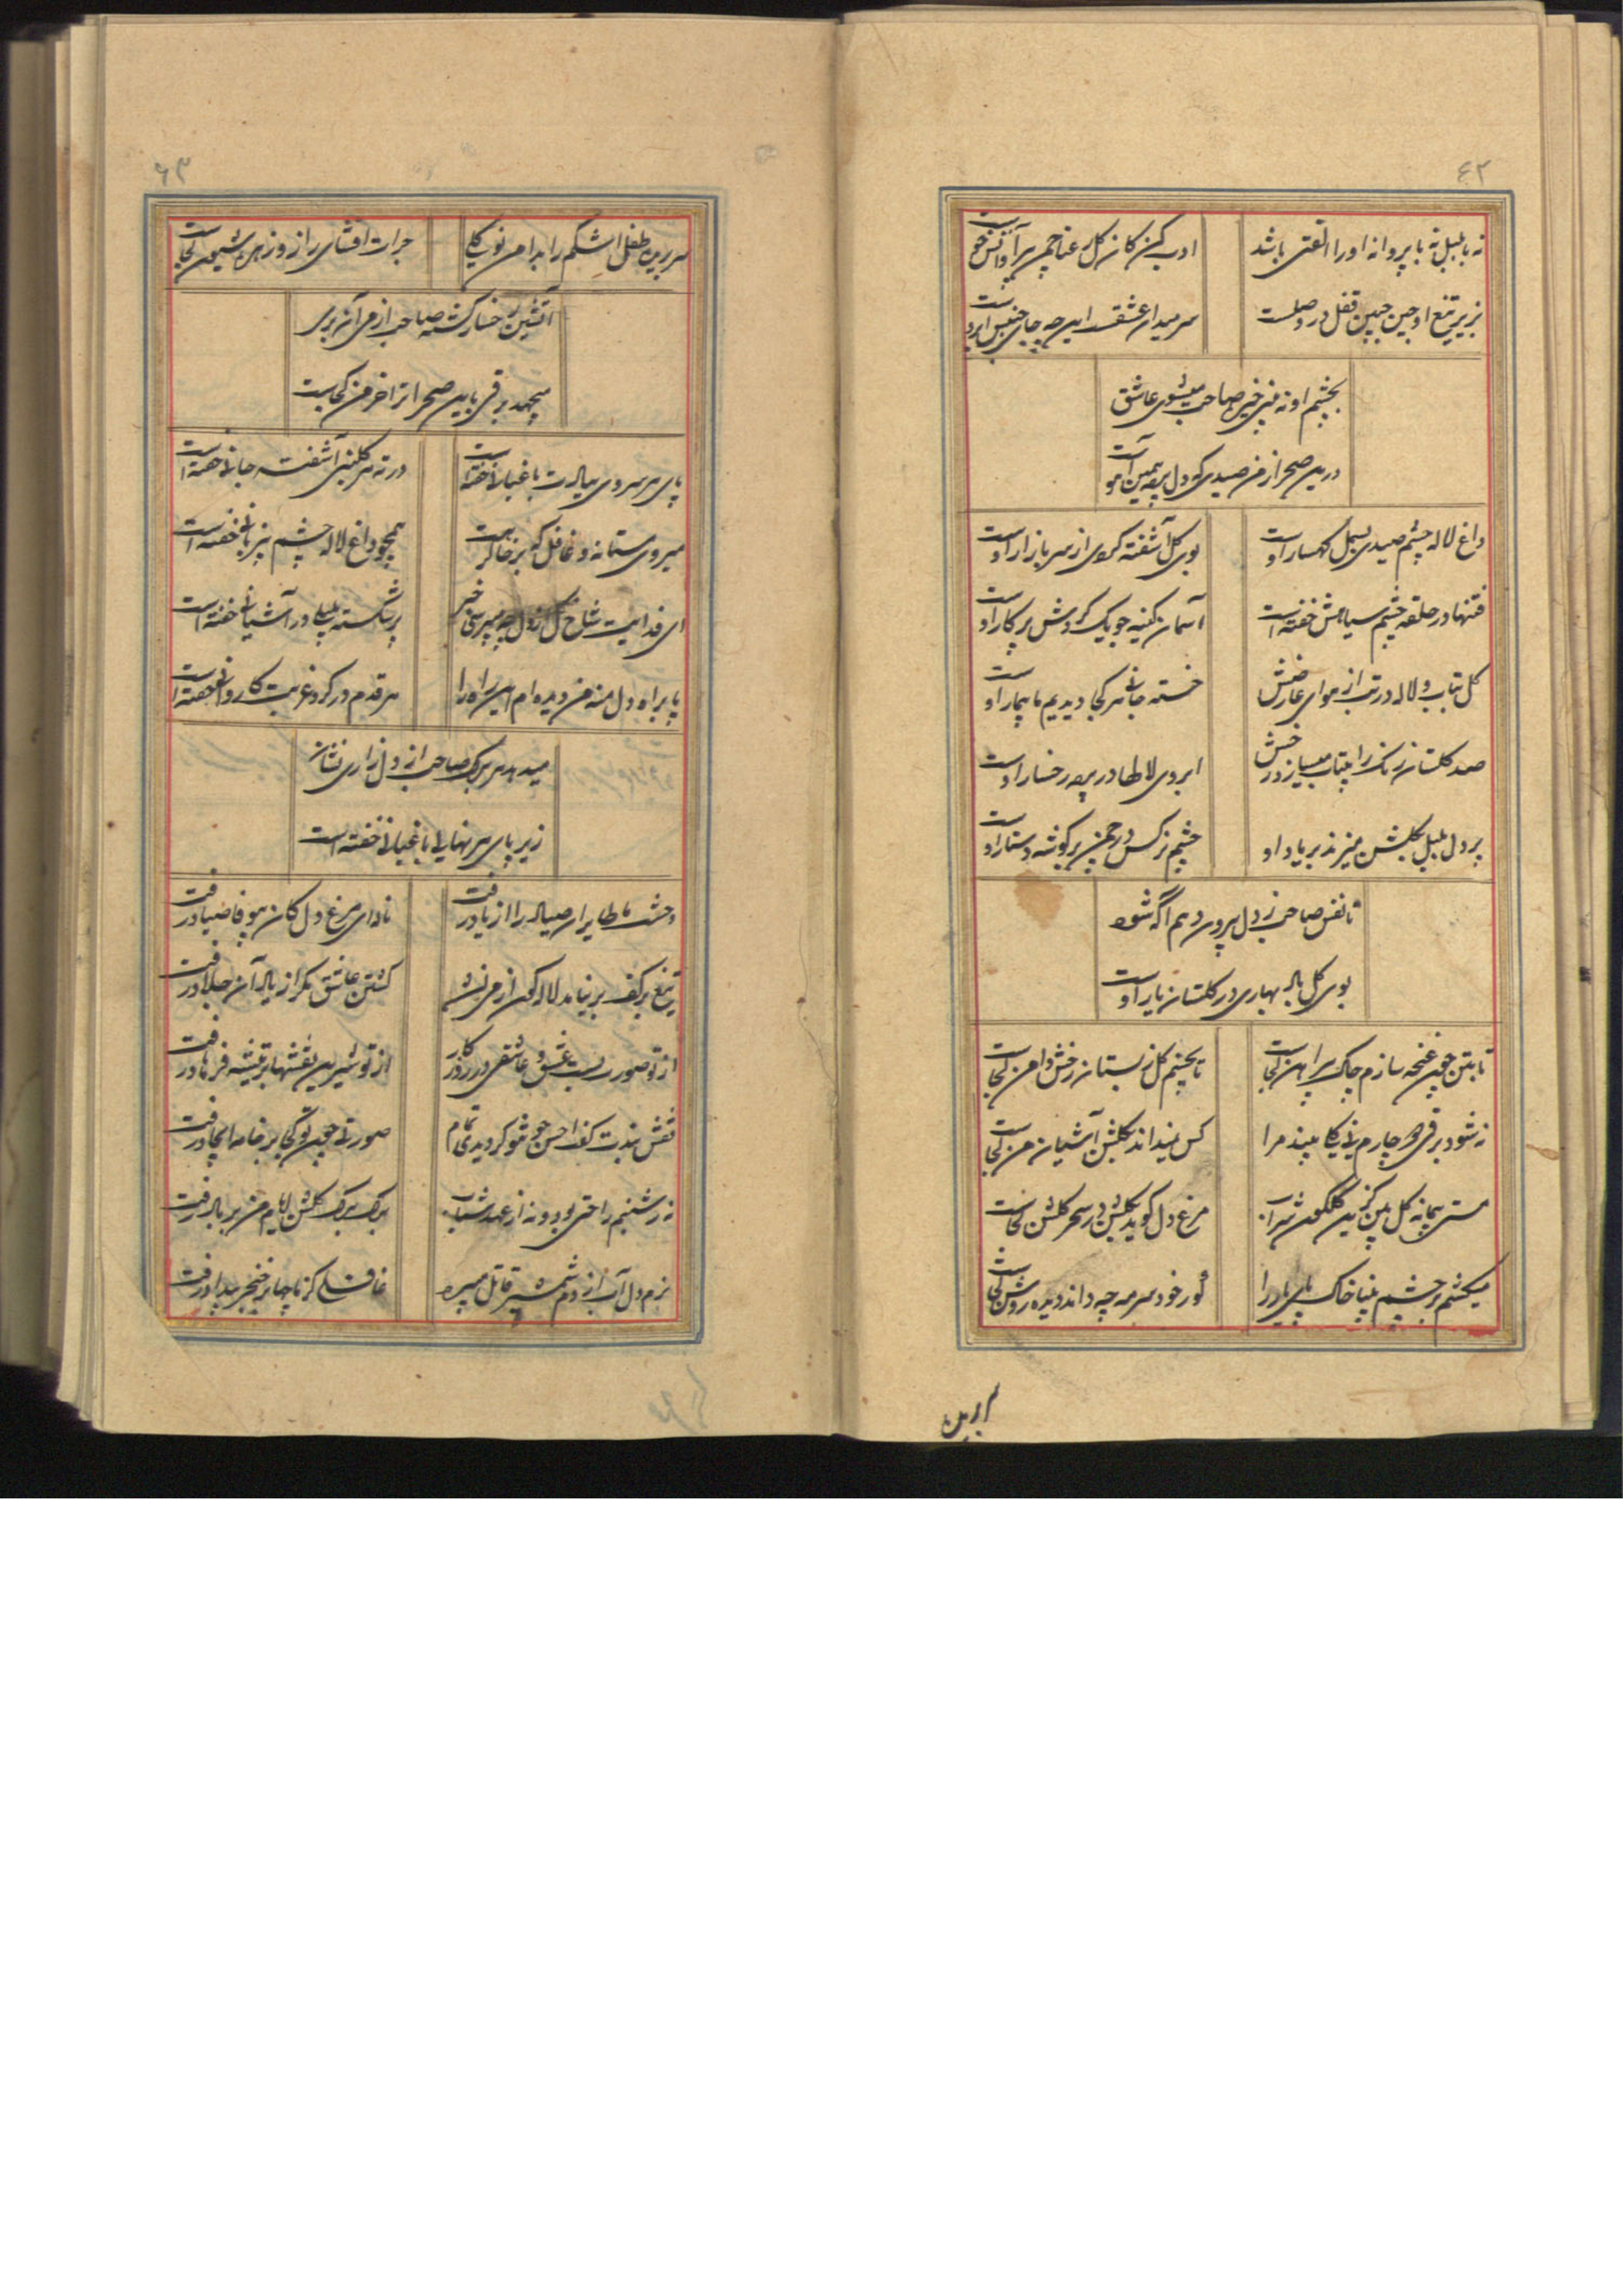 ٤٢
نه با بلبل نه با پروانه او را الفتی باشد
ادب کن کان گل رعنا چمن پیرا و آتش خوست
بزیر تیغ او چین جبین قفل در وصلست
سر میدان عشقست این چه جای جنبش ابروست
بچشم او نه منی صاحب میشوی عاشق
درین صحرا ز من صیدی که دل برد همین آهوست
داغ لاله چشم صیدی بسمل کهسار اوست
بوی گل آشفته گوی از سر بازار اوست
فتنها در حلقه چشم سیاهش خفته است
آسمان کینه جو یک گردش پرکار اوست
گل بتاب و لاله در تب از هوای عارضش
خسته جانی هر کجا دیدیم ما بیمار اوست
صد گلستان رنگ را بیتاب میسازد رخش
ابروی لاطها در بهر رخسار اوست
بر دل بلبل بگلشن میزند بر یاد او
چشم نرگس در چمن بر گوشه دستار اوست
تا نفس صاحب ز دل بیرون دهم آگه شود
بوی گل باد بهاری در گلستان یار اوست
تا بتن چون غنچه سازم چاک پیراهن کجاست
تا بچینم گل ز بستان رخش دامن کجاست
نه شود برقی دچارم نی یکا بیند مرا
کس نمیداند بگلشن آشیان من کجاست
مستی پیمانه گل بین گزین گلگون شراب
مرغ دل گوید بگلشن در سحر گلشن کجاست
میکشم بر چشم بینا خاک پای یار را
کور خود سرمه چه داند دیده روشن کجاست
٤٣
سر بریده طفل اشکم را بدامن
جرات افشای راز و زهره شیون کجاست
آتشین رخسار گشته صاحب از می آن پری
میجهد برقی باین صحرا ترا خرمن کجاست
پای هر سروی بیادت باغبانی خفته است
در ته هر گلبنی آشفته جانی خفته است
میروی مستانه و غافل که بر خاک رهت
همچو داغ لاله چشم خفته است
ای فدایت شاخ گل از دل چه میپرسی خبر
پرشکسته بلبلی در آشیانی خفته است
پا براه دل منه من دیده ام این راه را
هر قدم در گرد غربت کاروانی خفته است
میدهد هر برگ صاحب از دل زاری نشان
زیر پای هر نهالی باغبانی خفته است
وحشت ما طایران صیاد را از یاد رفت
نادای مرغ دل کان بیوفا صیاد رفت
تیغ بر کف بر نیامد لاله گون از می نشد
کشتن عاشق مگر از یاد آن جلاد رفت
از تو صورت بست عشق و عاشقی در روزگار
از تو شیرین نقشها بر تیشه فرهاد رفت
نقش بندت کفت احسن چو تو گردیدی تمام
صورتی چون تو کجا بر خامه ایجاد رفت
نه ز شبنم راحتی بود و نه از عهد شباب
برگ برگ گلشن ایام من بر باد رفت
نزم دل آب از دم شمشیر قاتل میبرد
غافلی کز ما چها بر خنجر بیداد رفت